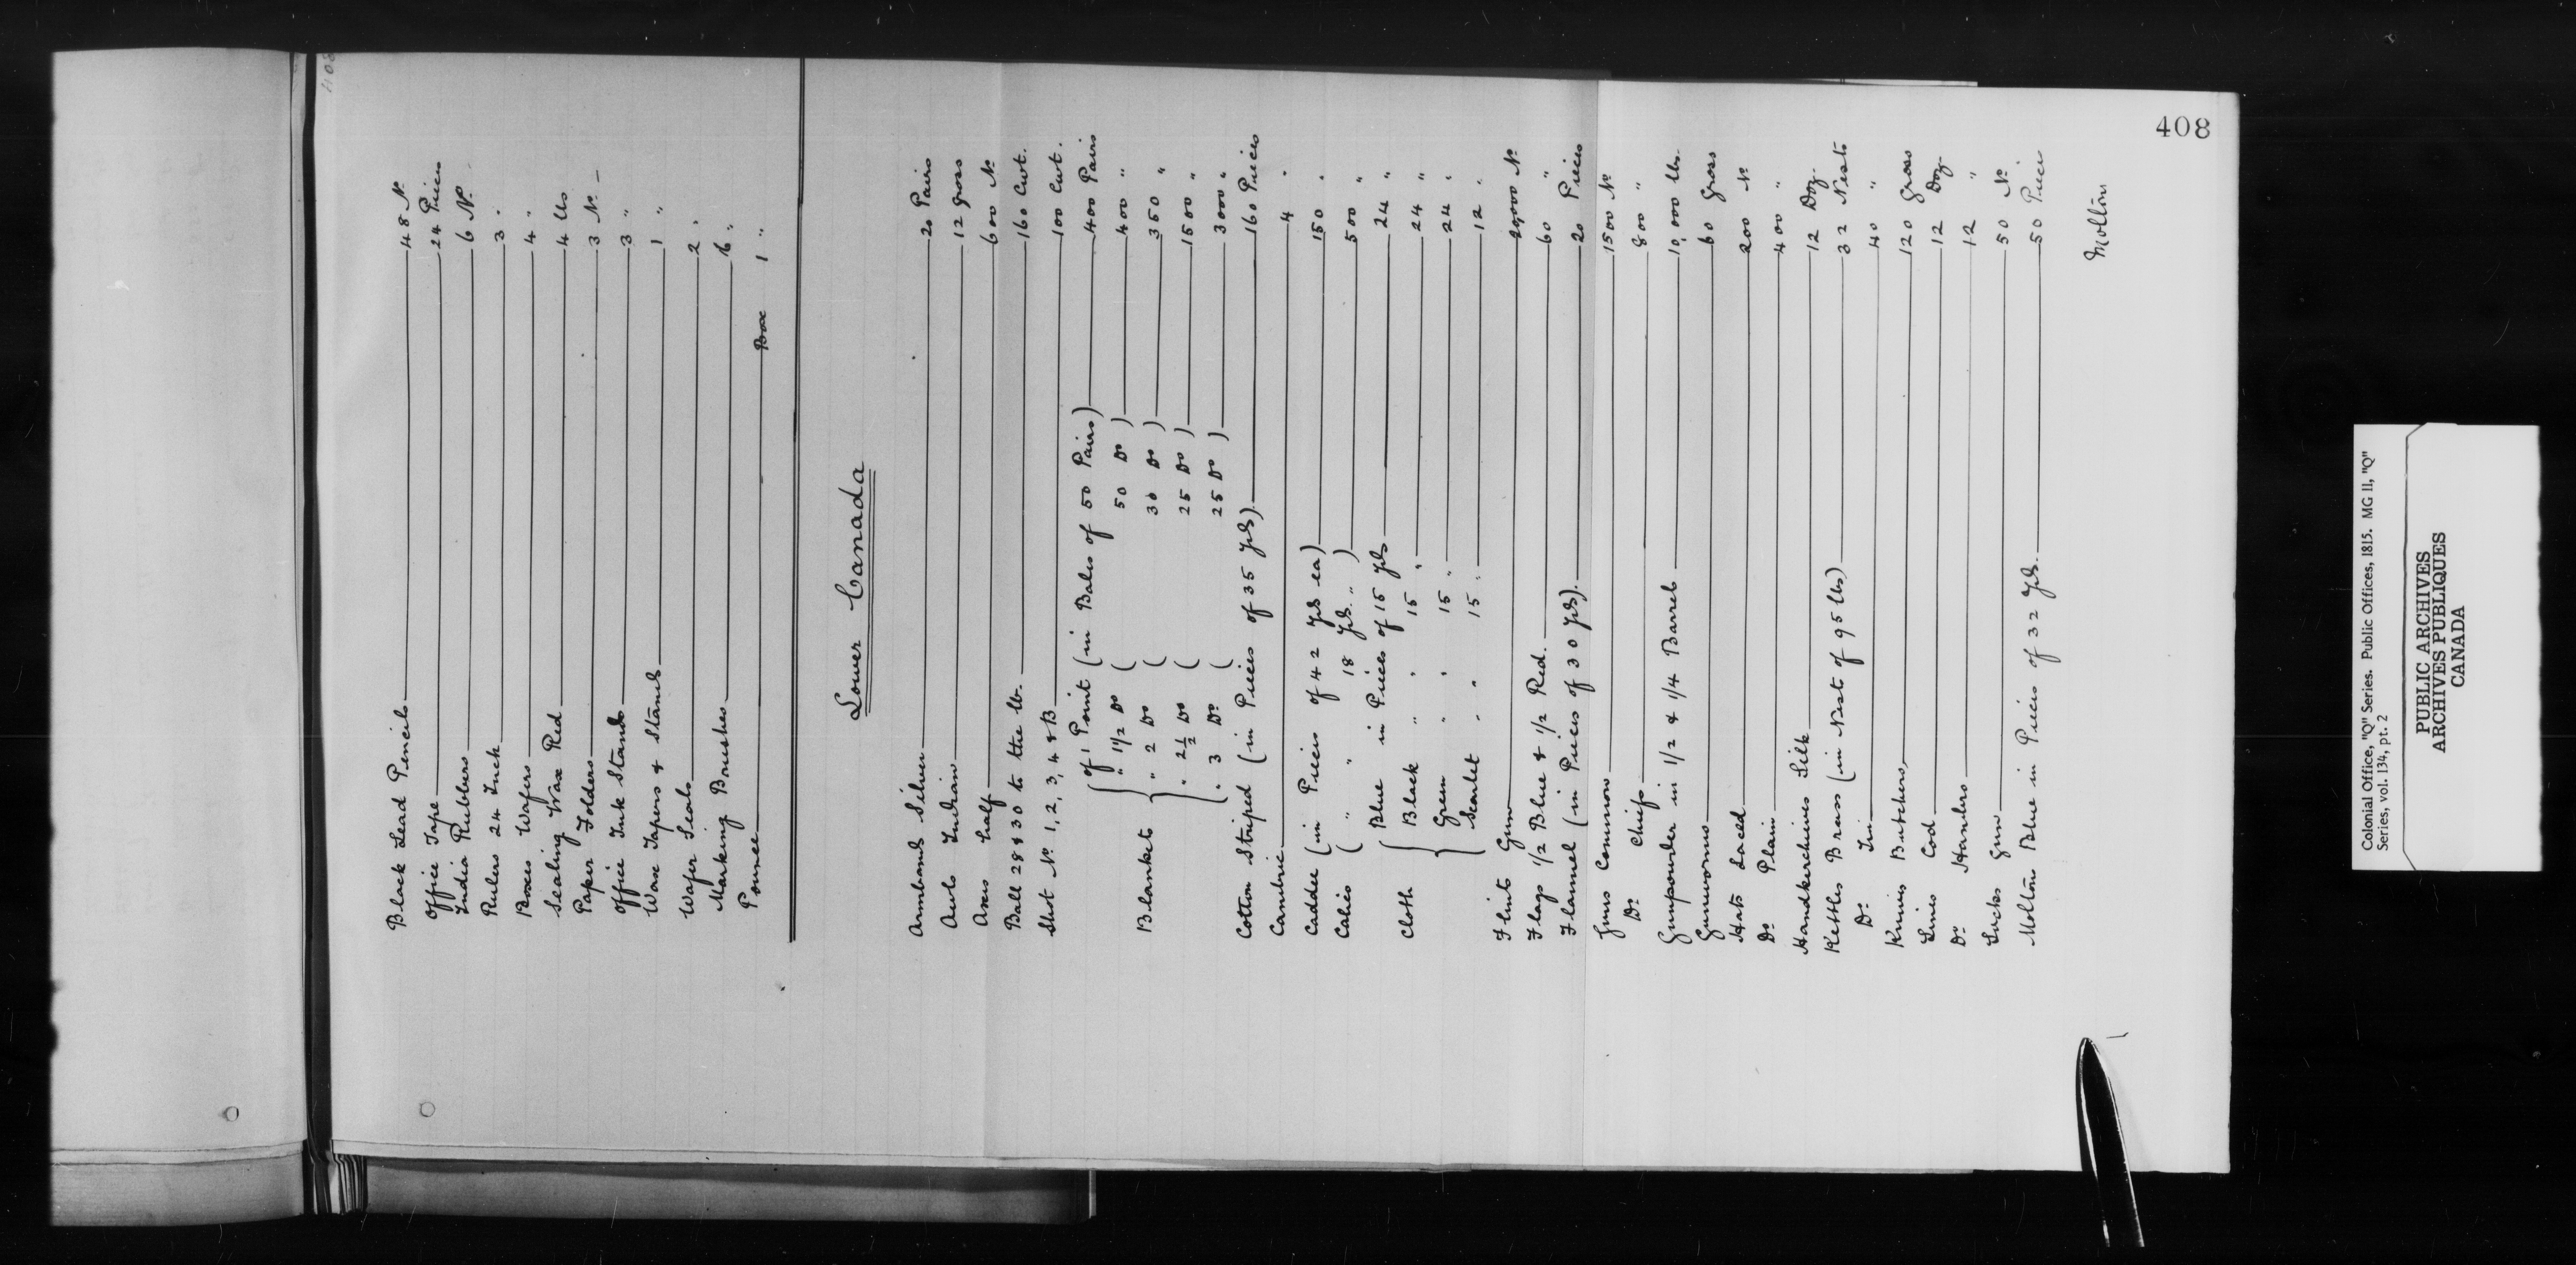 408
Black Lead Pencils 48 No
Office Tape 24 Pieces
India Rubbers 6 No
Rulers 24 Inch 3 "
Boxes Wafers 4 "
Sealing Wax Red 4 lbs
Paper Folders 3 No
Office Ink Stands 3 "
Wax Tapers & Stands 1 "
Wafer Seals 2 "
Marking Brushes 6 "
Pounce Box 1 "
Lower Canada
Armbands Silver 20 Pairs
Awls Indian 12 Gross
Axes half 600 No
Ball 28 & 30 to the lb. 160 Cwt.
Shot No. 1, 2, 3, 4 & B 100 Cwt.
Blankets { of 1 Point (in Bales of 50 Pairs) 400 Pairs
" 1 1/2 Do ( 50 Do ) 400 "
" 2 Do ( 30 Do ) 350 "
" 2 1/2 Do ( 25 Do ) 1500 "
" 3 Do ( 25 Do ) 3000 "
Cotton Striped (in Pieces of 35 yds) 160 Pieces
Cambric 4 "
Caddee (in Pieces of 42 yds ea) 150 "
Calico ( " " 18 yds. " ) 500 "
Cloth { Blue in Pieces of 15 yds 24 "
Black " " 15 " 24 "
Green " " 15 " 24 "
Scarlet " " 15 " 12 "
Flints Gun 20,000 No
Flags 1/2 Blue & 1/2 Red. 60 "
Flannel (in Pieces of 30 yds). 20 Pieces
Guns Common 1500 No
Do Chiefs 800 "
Gunpowder in 1/2 & 1/4 Barrels 10,000 lbs.
Gunworms 60 Gross
Hats Laced 200 No
Do Plain 400 "
Handkerchiefs Silk 12 Doz.
Kettles Brass (in Nest of 95 lbs) 32 Nests
Do. Tin 40 "
Knives Butchers 120 Gross
Lines Cod 12 Doz
Do Hambro 12 "
Locks Gun 50 No
Molton Blue in Pieces of 32 yds. 50 Piece
Molton
Colonial Office, "Q" Series. Public Offices, 1815. MG 11, "Q"
Series, vol. 134, pt. 2
PUBLIC ARCHIVES
ARCHIVES PUBLIQUES
CANADA